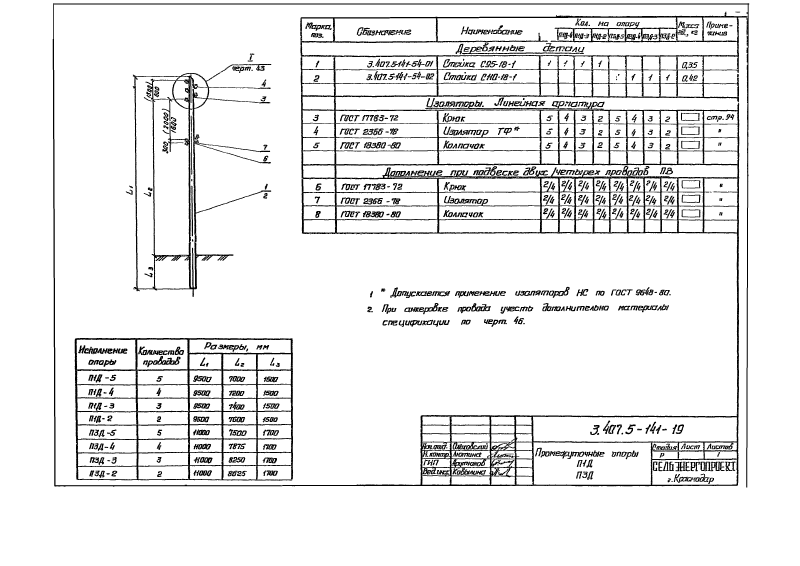 Марка, поз. Обозначение Наименование Кол. на опору Масса ед., кг Примечания
П1Д-5 П1Д-4 П1Д-3 П1Д-2 П3Д-5 П3Д-4 П3Д-3 П3Д-2
Деревянные детали
1 3.407.5-141-54-01 Стойка С95-18-1 1 1 1 1 0,35
2 3.407.5-141-54-02 Стойка С110-18-1 1 1 1 0,42
Изоляторы. Линейная арматура
3 ГОСТ 17783-72 Крюк 5 4 3 2 5 4 3 2 стр. 94
4 ГОСТ 2366-78 Изолятор ТФ* 5 4 3 2 5 4 3 2 "
5 ГОСТ 18380-80 Колпачок 5 4 3 2 5 4 3 2 "
Дополнение при подвеске двух/четырех проводов ПВ
6 ГОСТ 17783-72 Крюк 2/4 2/4 2/4 2/4 2/4 2/4 2/4 2/4 "
7 ГОСТ 2366-78 Изолятор 2/4 2/4 2/4 2/4 2/4 2/4 2/4 2/4 "
8 ГОСТ 18380-80 Колпачок 2/4 2/4 2/4 2/4 2/4 2/4 2/4 2/4 "
I
черт. 43
4
3
7
6
1
2
600
(2000)
1600
300
L1
L2
L3
1 * Допускается применение изоляторов НС по ГОСТ 9648-80.
2. При анкеровке провода учесть дополнительно материалы
спецификации по черт. 46.
Исполнение опоры Количество проводов Размеры, мм
L1 L2 L3
П1Д-5 5 9500 7000 1500
П1Д-4 4 9500 7200 1500
П1Д-3 3 9500 7400 1500
П1Д-2 2 9500 7600 1500
П3Д-5 5 11000 7500 1700
П3Д-4 4 11000 7875 1700
П3Д-3 3 11000 8250 1700
П3Д-2 2 11000 8625 1700
3.407.5-141-19
Нач.отд.
Н.контр.
ГИП
Вед.инж.
Промежуточные опоры
П1Д
П3Д
Стадия Лист Листов
Р 1
СЕЛЬЭНЕРГОПРОЕКТ
г. Краснодар